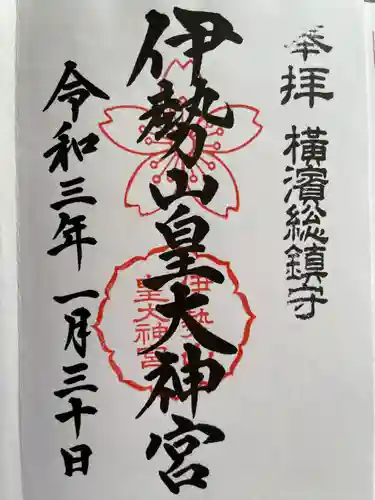 奉拝 横濱総鎮守
伊勢山皇大神宮
伊勢山
皇大神宮
令和三年 一月三十日